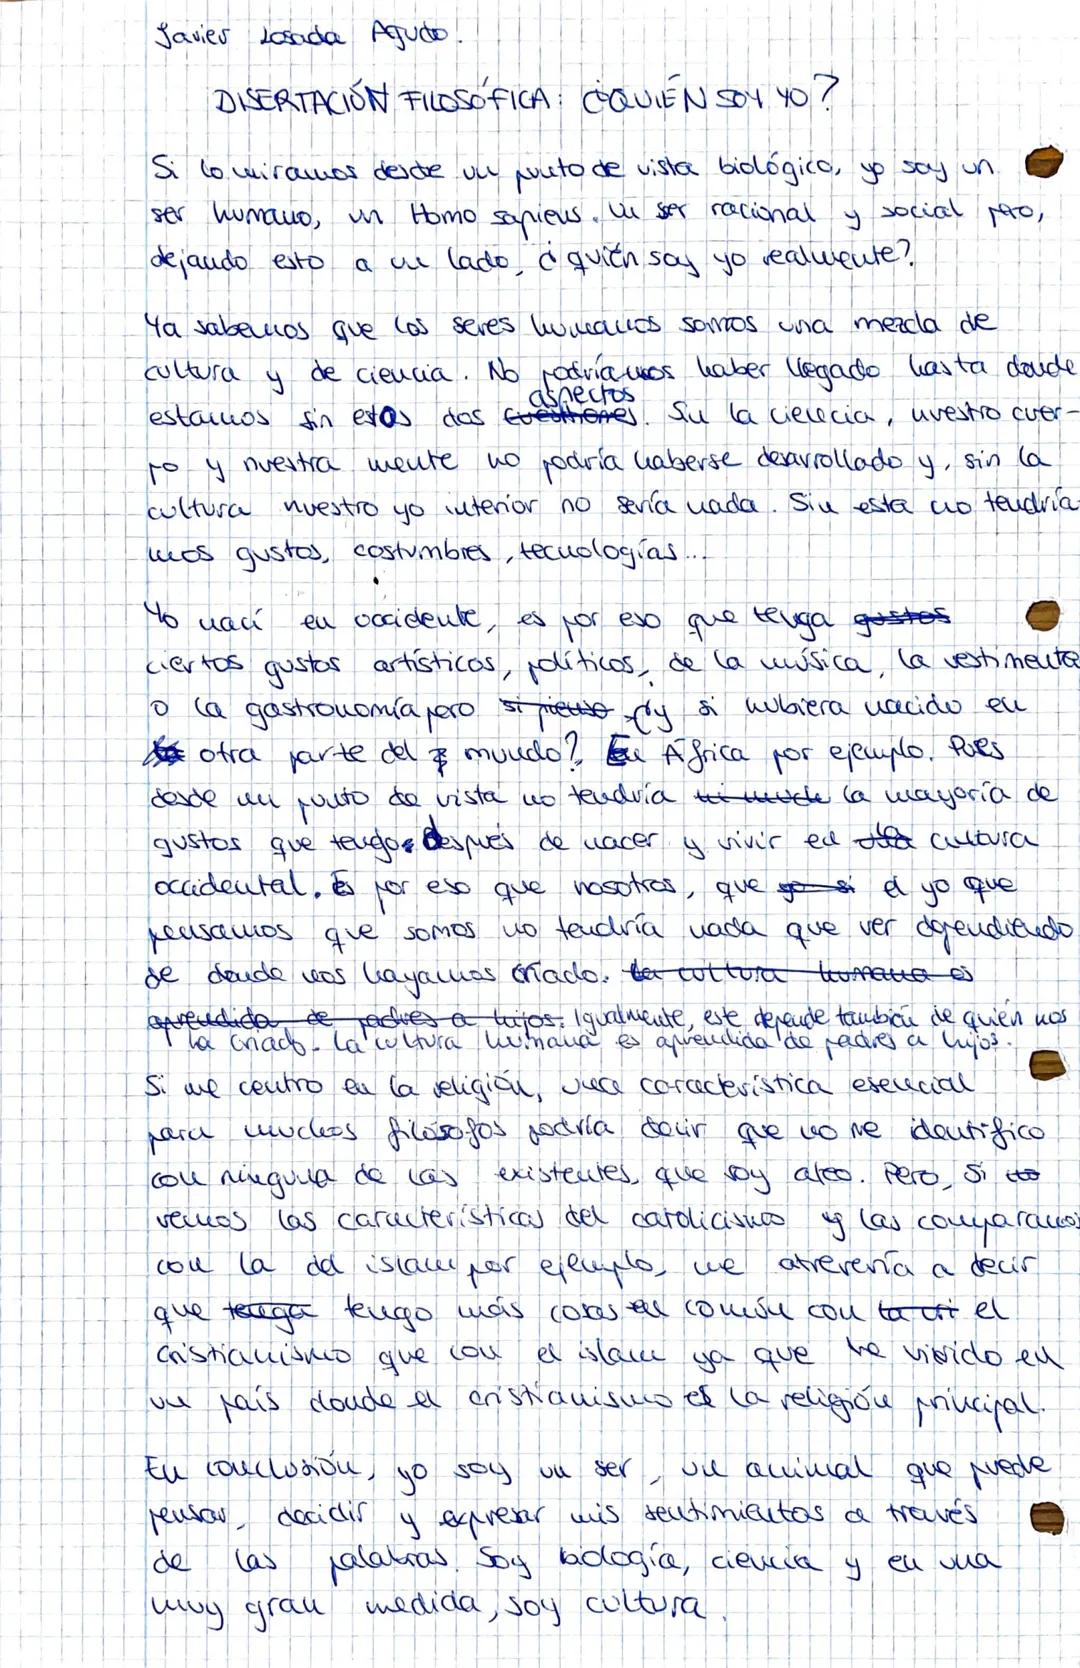 Javier Losada Agudo.
DISERTACIÓN FILOSÓFICA: ¿QUIÉN SOY YO?
Si lo miramos desde un punto de vista biológico, yo soy un
ser humano, un Homo sapiens. Un ser racional y social pero,
dejando esto a un lado, ¿quién soy yo realmente?
Ya sabemos que los seres humanos somos una mezcla de
cultura y de ciencia. No podríamos haber llegado hasta donde
estamos sin estos dos aspectos cuestiones. Sin la ciencia, nuestro cuer-
po y nuestra mente no podría haberse desarrollado y, sin la
cultura nuestro yo interior no sería nada. Sin esta no tendría-
mos gustos, costumbres, tecnologías...
Yo nací en occidente, es por eso que tenga gustos
ciertos gustos artísticos, políticos, de la música, la vestimenta
o la gastronomía pero si pienso ¿y si hubiera nacido en
otra parte del mundo? En África por ejemplo. Pues
desde un punto de vista no tendría la mayoría de
gustos que tengo después de nacer y vivir en la cultura
occidental. Es por eso que nosotros, que yo si el yo que
pensamos que somos no tendría nada que ver dependiendo
de donde nos hayamos criado. La cultura humana es
aprendida de padres a hijos. Igualmente, este depende también de quién nos
ha criado. La cultura humana es aprendida de padres a hijos.
Si me centro en la religión, una característica esencial
para muchos filósofos podría decir que no me identifico
con ninguna de las existentes, que soy ateo. Pero, si
vemos las características del catolicismo y las comparamos
con la del islam por ejemplo, me atrevería a decir
que tenga tengo más cosas en común con la cri el
cristianismo que con el islam ya que he vivido en
un país donde el cristianismo es la religión principal.
En conclusión, yo soy un ser, un animal que puede
pensar, decidir y expresar mis sentimientos a través
de las palabras. Soy biología, ciencia y en una
muy gran medida, soy cultura.